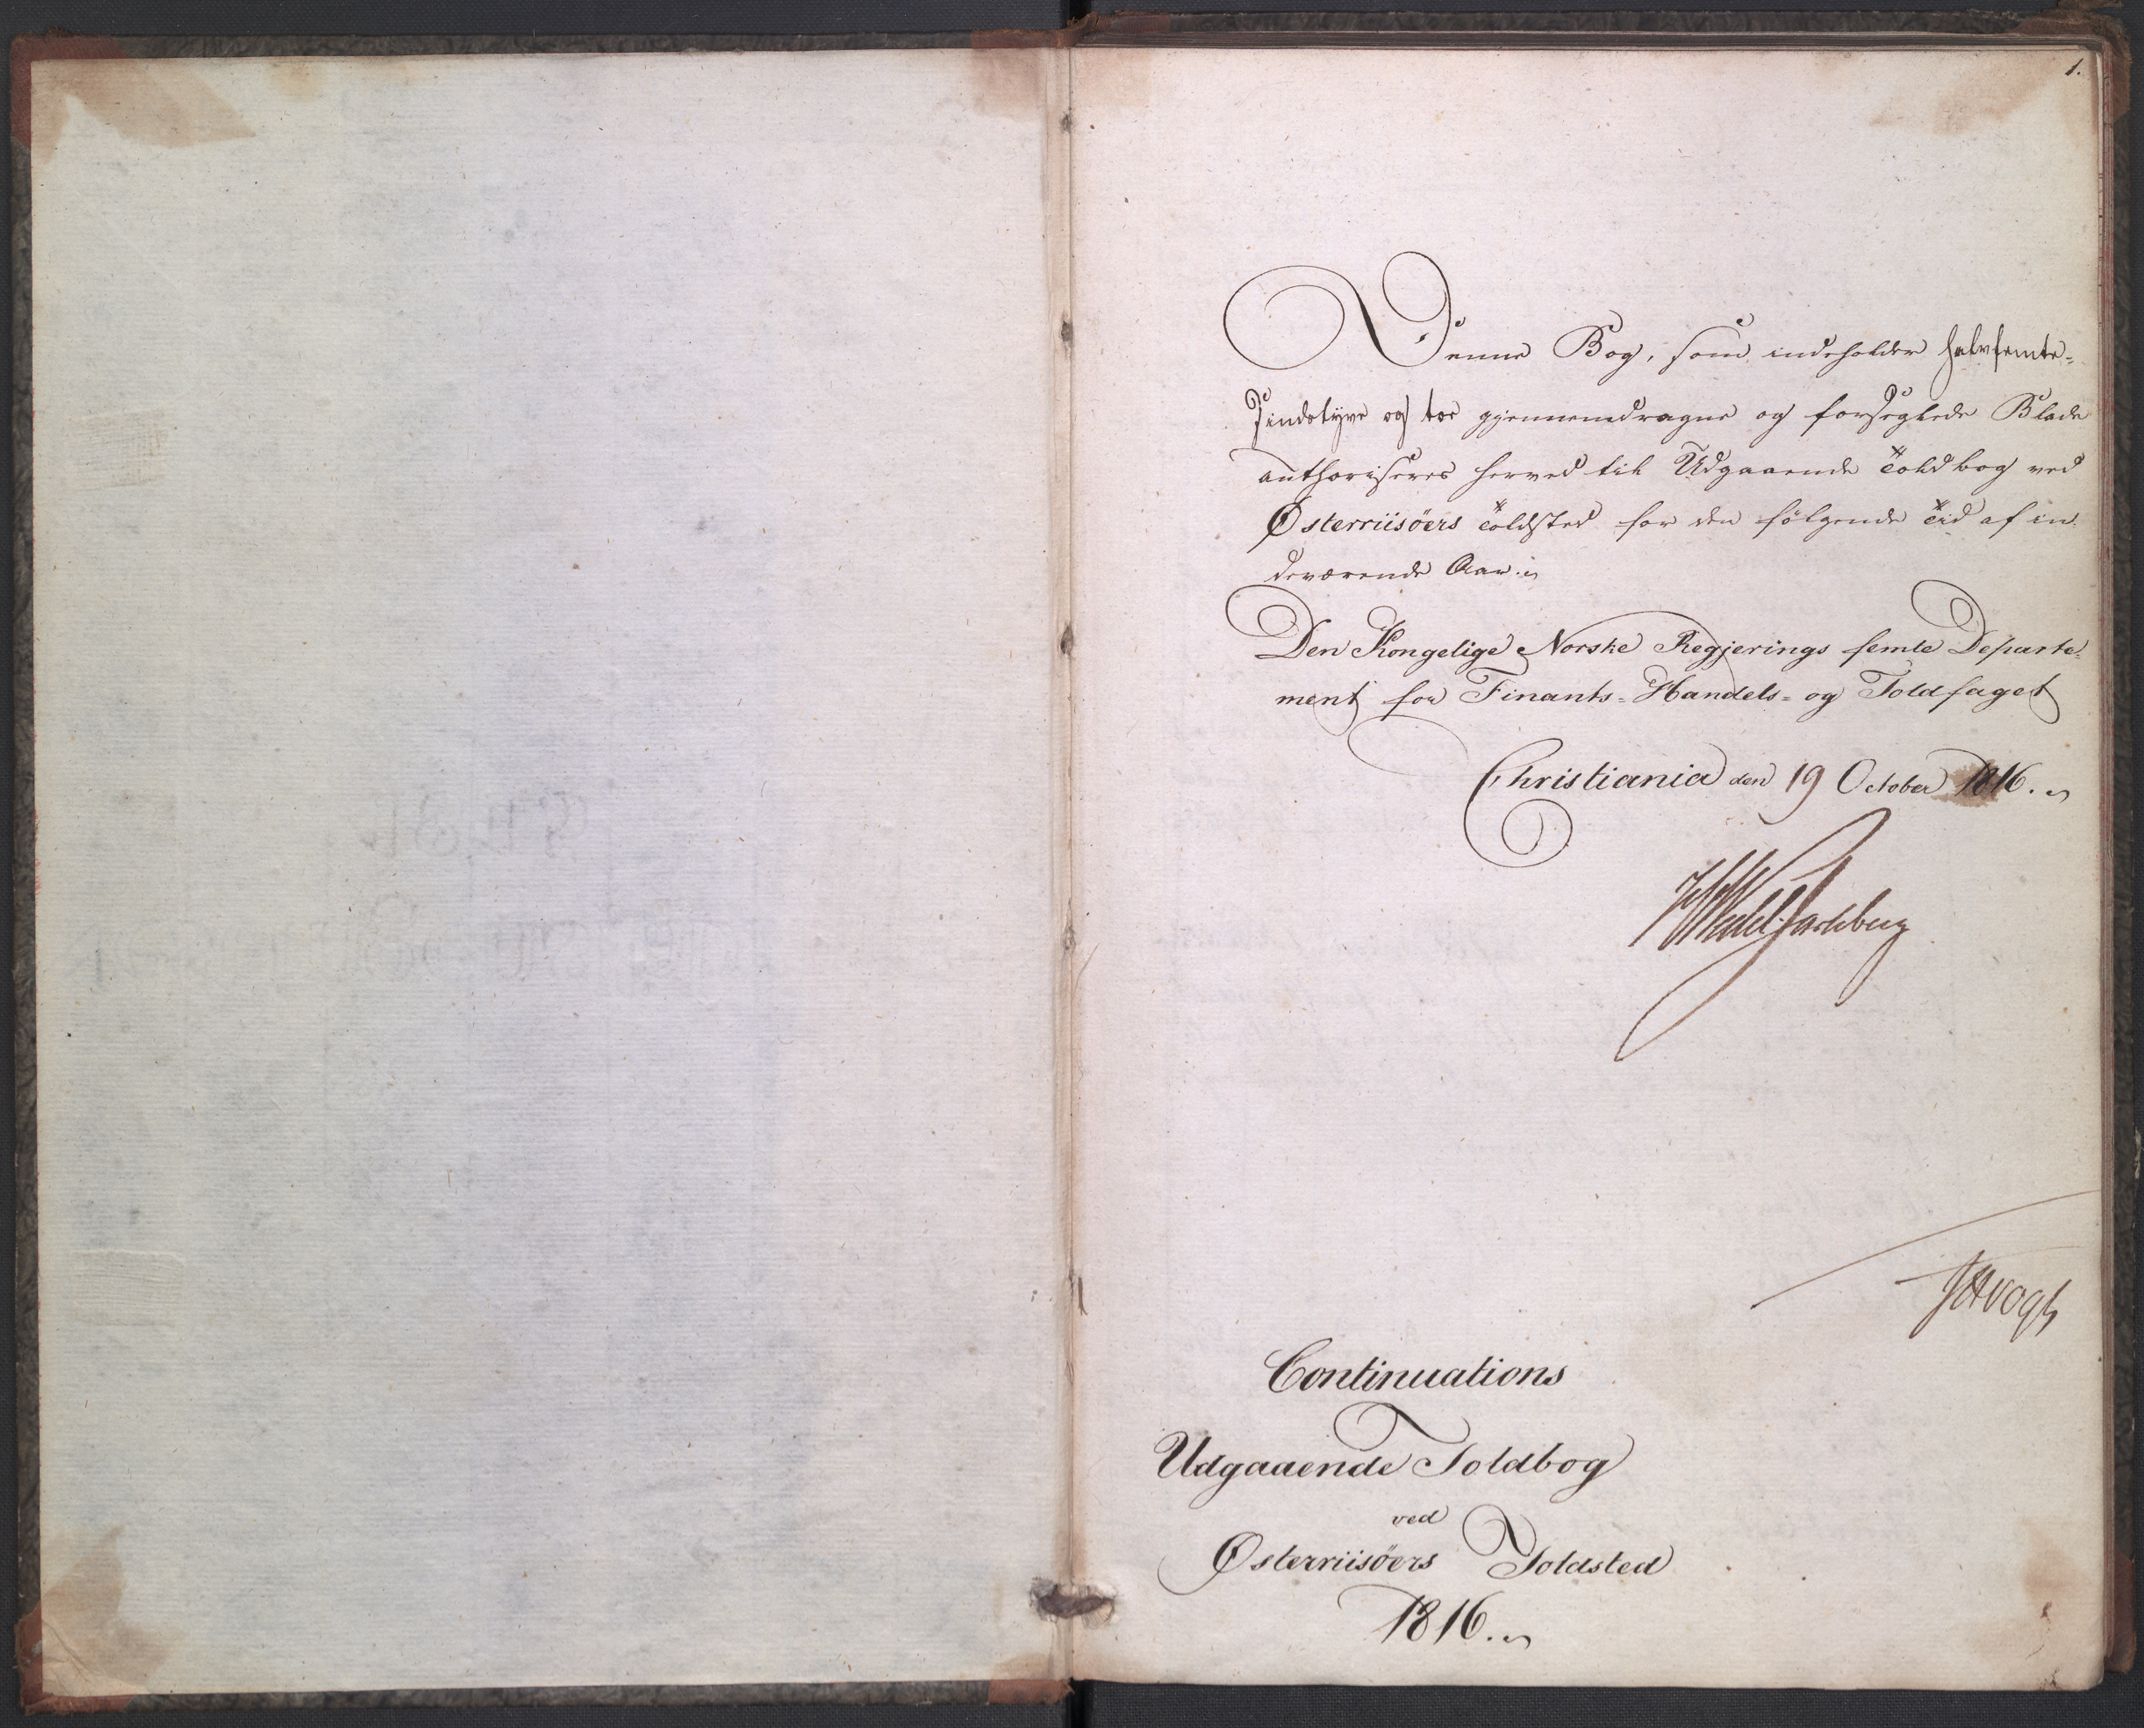 1.
Denne Bog, som indeholder halvfemte-
sindstyve og toe gjennemdragne og forseglede Blade
authoriseres herved til Udgaaende Toldbog ved
Østerriisöers Toldsted for den følgende Tid af in
deværende Aar.
Den Kongelige Norske Regjerings femte Departe-
ment for Finants- Handels- og Toldfaget
Christiania den 19 October 1816.
HWedel Jarlsberg
JHVogt
Continuations
Udgaaende Toldbog
ved
Østerriisöers Toldsted
1816.